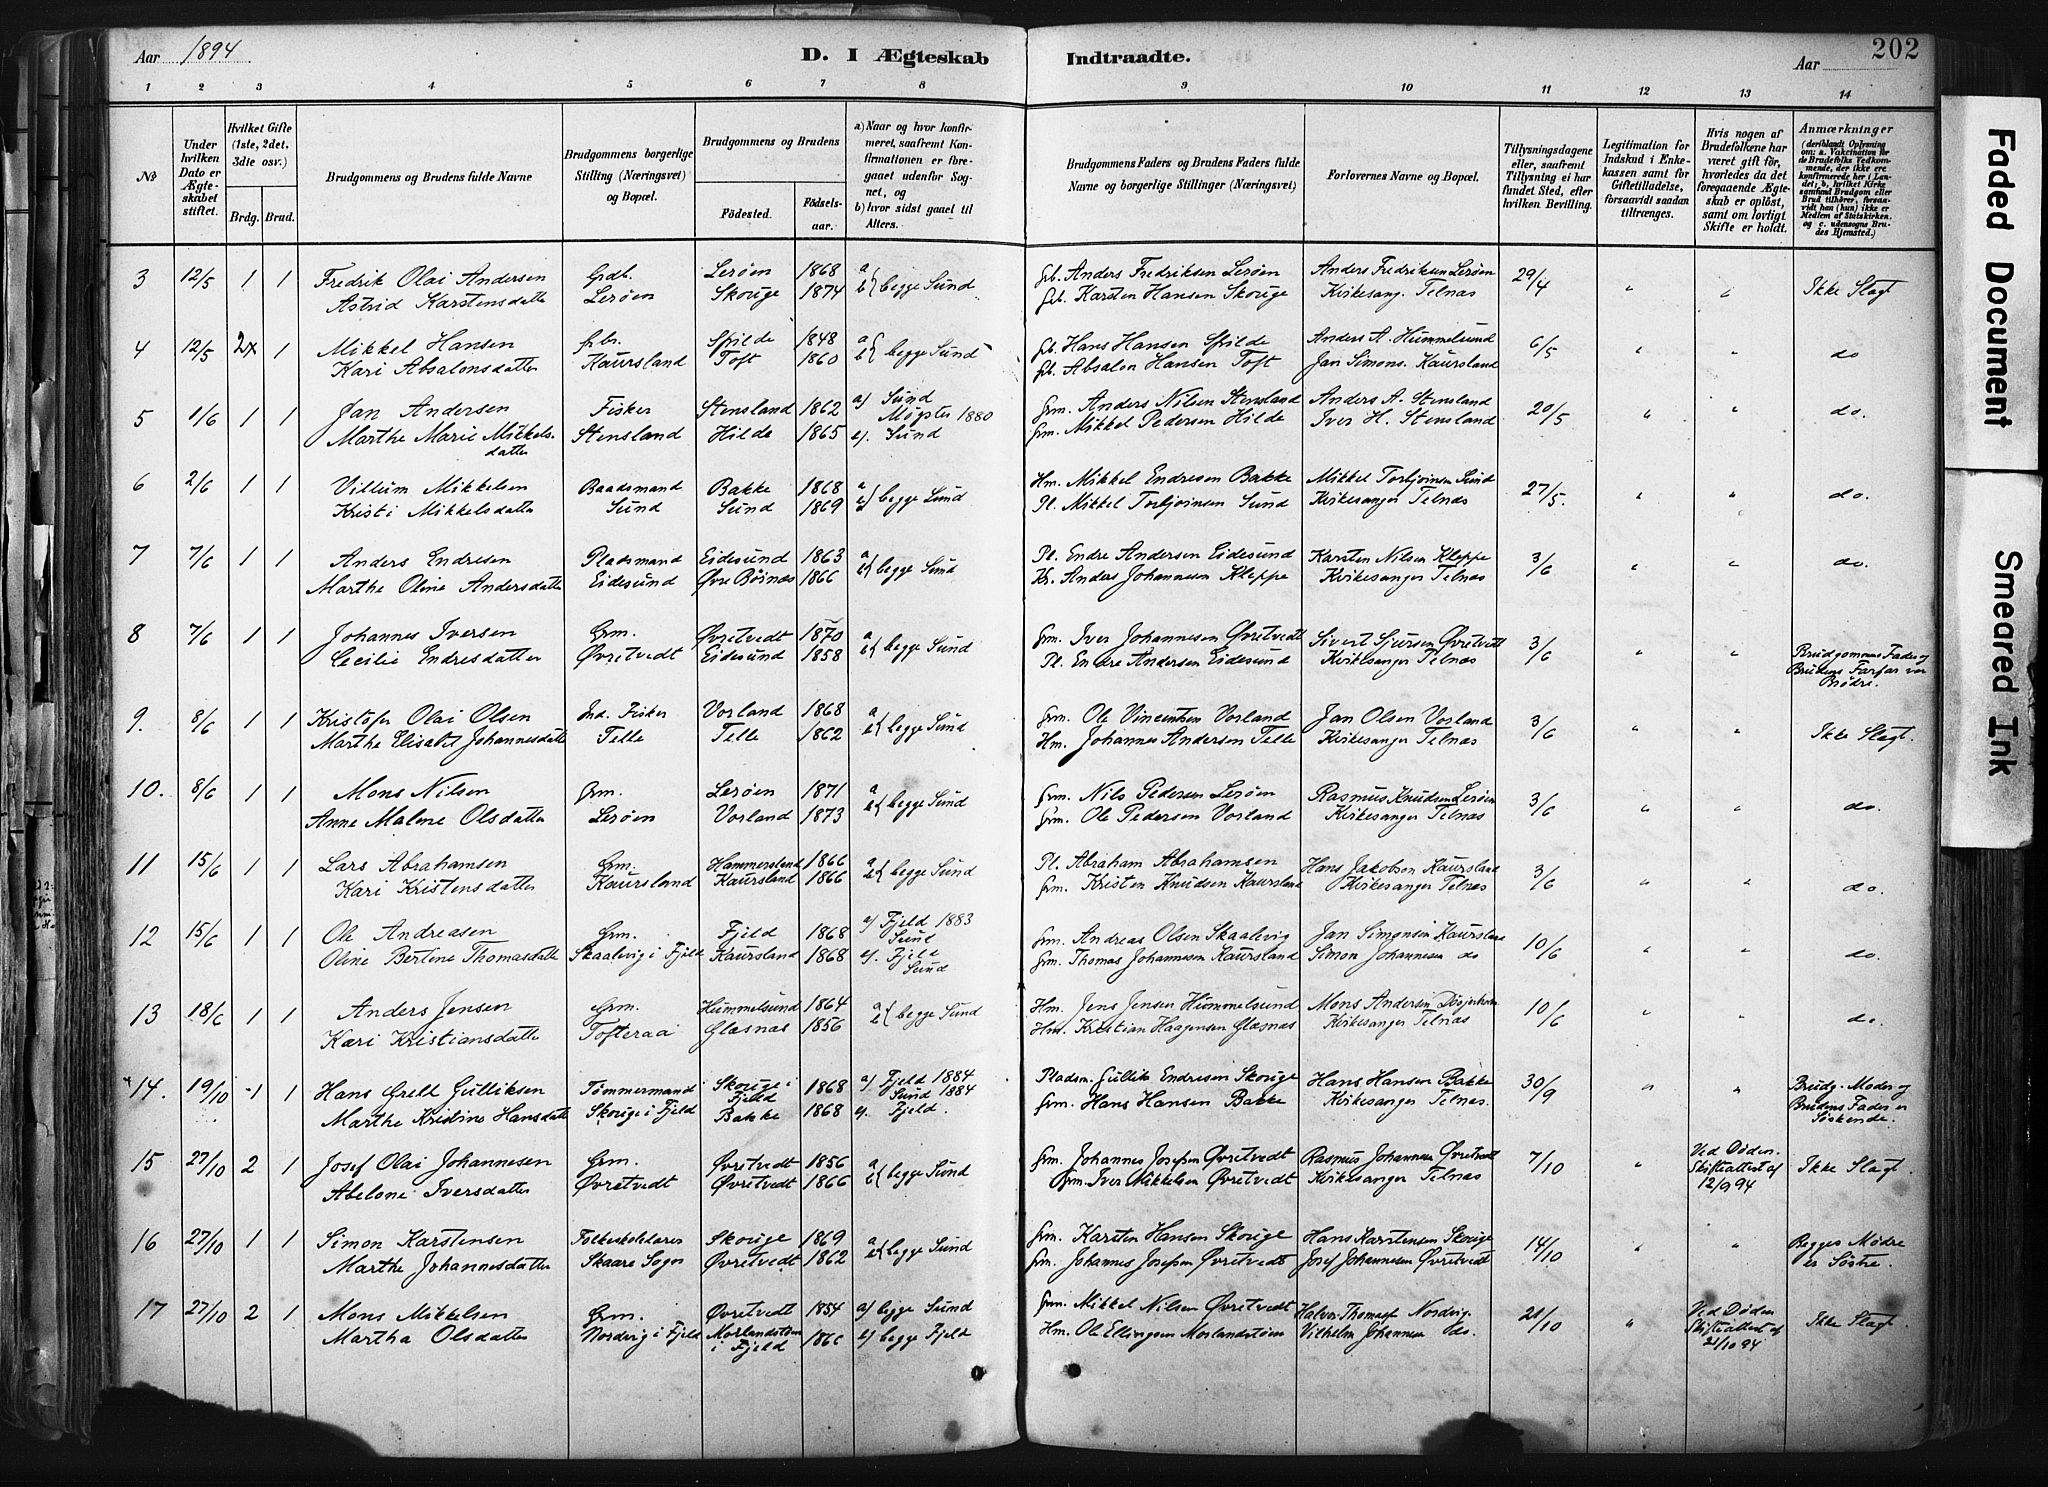 Aar 1894 D. I Ægteskab Indtraadte. Aar 202
1 2 3 4 5 6 7 8 9 10 11 12 13 14
No
Under hvilken Dato er Ægteskabet stiftet.
Hvilket Gifte (1ste, 2det, 3die osv.)
Brdg. Brud.
Brudgommens og Brudens fulde Navne
Brudgommens borgerlige Stilling (Næringsvei) og Bopæl.
Brudgommens og Brudens
Fødested. Fødselsaar.
a) Naar og hvor konfirmeret, saafremt Konfirmationen er foregaaet udenfor Sognet, og
b) hvor sidst gaaet til Alters.
Brudgommens Faders og Brudens Faders fulde Navne og borgerlige Stillinger (Næringsvei)
Forlovernes Navne og Bopæl.
Tillysningsdagene eller, saafremt Tillysning ei har fundet Sted, efter hvilken Bevilling.
Legitimation for Indskud i Enkekassen samt for Giftetilladelse, forsaavidt saadan tiltrænges.
Hvis nogen af Brudefolkene har været gift før, hvorledes da det foregaaende Ægteskab er opløst, samt om lovligt Skifte er holdt.
Anmærkninger (deriblandt Oplysning om: a. Vakcination for de Brudefolks Vedkommende, der ikke ere konfirmerede her i Landet; b. hvilket Kirkesamfund Brudgom eller Brud tilhører, forsaavidt han (hun) ikke er Medlem af Statskirken, og c. udensogns Brudes Hjemsted.)
3 12/5 1 1 Fredrik Olai Andersen Grdb. Lerøen 1868 a b begge Sund Grb. Anders Fredriksen Lerøen Anders Fredriksen Lerøen 29/4 " " Ikke Slagt
Astrid Karstensdatter Lerøen Skouge 1874 Grb. Karsten Hansen Skouge Kirkesang. Telnæs
4 12/5 2x 1 Mikkel Hansen Grb. Spilde 1848 a b begge Sund Grb. Hans Hansen Spilde Anders A. Hummelsund 6/5 " " do
Kari Absalonsdatter Kaursland Toft 1860 Grb. Absalon Hansen Toft Jan Simons. Kaursland
5 1/6 1 1 Jan Andersen Fisker Stensland 1862 a) Sund Møgster 1880 Grm. Anders Nilsen Stensland Anders A. Stensland 20/5 " " do.
Marthe Marie Mikkelsdatter Stensland Hilde 1865 b). Sund Grm. Mikkel Pedersen Hilde Iver H. Stensland
6 2/6 1 1 Villum Mikkelsen Baadsmand Bakke 1868 a b) begge Sund Hm. Mikkel Endresen Bakke Mikkel Torbjørnsen Sund 27/5. " " do.
Kristi Mikkelsdatter Sund Sund 1869 Pl. Mikkel Torbjørnsen Sund Kirkesanger Telnæs
7 7/6 1 1 Anders Endresen Pladsmand Eidesund 1863 a b begge Sund Pl. Endre Andersen Eidesund Karsten Nilsen Kleppe 3/6 " " do.
Marthe Oline Andersdatter Eidesund Øvre Børnæs 1866 Kr. Anders Johannesen Kleppe Kirkesanger Telnæs
8 7/6 1 1 Johannes Iversen Grm. Øvretvedt 1870 a b begge Sund Grm. Iver Johannesen Øvretvedt Sivert Sjursen Øvretvedt 3/6 " " Brudgommens Fader og Brudens Farfar var Brødre.
Cecilie Endresdatter Øvretvedt Eidesund 1858 Pl. Endre Andersen Eidesund Kirkesanger Telnæs
9. 8/6 1 1 Kristofer Olai Olsen Ind. Fisker Vorland 1868 a b begge Sund Grm. Ole Vincentsen Vorland Jan Olsen Vorland 3/6 " " Ikke Slagt.
Marthe Elisabet Johannesdatter Telle Telle 1862 Hm. Johannes Andersen Telle Kirkesanger Telnæs
10. 8/6 1 1 Mons Nilsen Grm. Lerøen 1871 a b begge Sund Grm. Nils Pedersen Lerøen Rasmus Knudsen Lerøen 3/6 " " do.
Anne Malene Olsdatter Lerøen Vorland 1873 Grm. Ole Pedersen Vorland Kirkesanger Telnæs
11 15/6 1 1 Lars Abrahamsen Grm. Hammersland 1866 a b begge Sund Pl. Abraham Abrahamsen Hans Jakobsen Kaursland 3/6 " " do.
Kari Kristensdatter Kaursland Kaursland 1866 Grm. Kristen Knudsen Kaursland Kirkesanger Telnæs
12 15/6 1 1 Ole Andreasen Grm. Fjeld 1868 a) Fjeld 1883 Sund Grm. Andreas Olsen Skaalevig Jan Simonsen Kaursland 10/6 " " do.
Oline Bertine Thomasdatter Skaalevig i Fjeld Kaursland 1868 b). Fjeld Sund Grm. Thomas Johannesen Kaursland Simon Johannesen do
13 18/6 1 1 Anders Jensen Grm. Hummelsund 1864 a b begge Sund Hm. Jens Jensen Hummelsund Mons Andersen 10/6 " " do.
Kari Kristiansdatter Tofteraa Glæsnæs 1856 Hm. Kristian Haagensen Glæsnæs Kirkesanger Telnæs
14. 19/10 1 1 Hans Gulliksen Tømmermand Skouge i Fjeld 1868 a) Fjeld 1884 Sund 1884 Pladsm. Gullik Endresen Skouge Hans Hansen Bakke 30/9 " " Brudg. Moder og Brudens Fader er Søskende.
Marthe Kristine Hansdatter Skouge i Fjeld Bakke 1868 b. Fjeld. Grm. Hans Hansen Bakke Kirkesanger Telnæs.
15 27/10 2 1 Josef Olai Johannesen Grm. Øvretvedt 1856 a b begge Sund Grm. Johannes Josefsen Øvretvedt Rasmus Johannesen Øvretvedt 7/10 " Ved Døden. Skifteattest af 12/9 94 Ikke Slagt.
Abelone Iversdatter Øvretvedt Øvretvedt 1866 Grm. Iver Mikkelsen Øvretvedt Kirkesanger Telnæs
16 27/10 1 1 Simon Karstensen Folkeskolelærer Skouge 1869 a b begge Sund Grm. Karsten Hansen Skouge Hans Karstensen Skouge 14/10 " " Begges Mødre er Søstre.
Marthe Johannesdatter Skaare Sogn Øvretvedt 1862 Grm. Johannes Josefsen Øvretvedt Josef Johannesen Øvretvedt
17 27/10 2 1 Mons Mikkelsen Grm. Øvretvedt 1854 a) begge Sund Grm. Mikkel Nilsen Øvretvedt Halvor Thomass. Nordvig. 21/10 " Ved Døden Skifteattest af 21/10 94 Ikke Slagt.
Martha Olsdatter Nordvig i Fjeld Morlandstøen i Fjeld 1866 b) begge Fjeld Hm. Ole Ellingsen Morlandstøen Vilhelm Johannesen do.
Faded Document
Smeared Ink